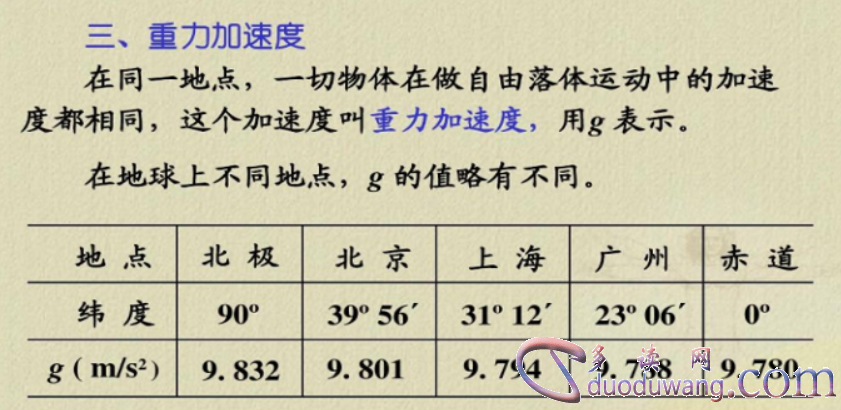 三、重力加速度
在同一地点，一切物体在做自由落体运动中的加速
度都相同，这个加速度叫重力加速度，用g 表示。
在地球上不同地点，g 的值略有不同。
地点 北极 北京 上海 广州 赤道
纬度 90º 39º 56´ 31º 12´ 23º 06´ 0º
g ( m/s²) 9.832 9.801 9.794 9.788 9.780
多读网
duoduwang.com